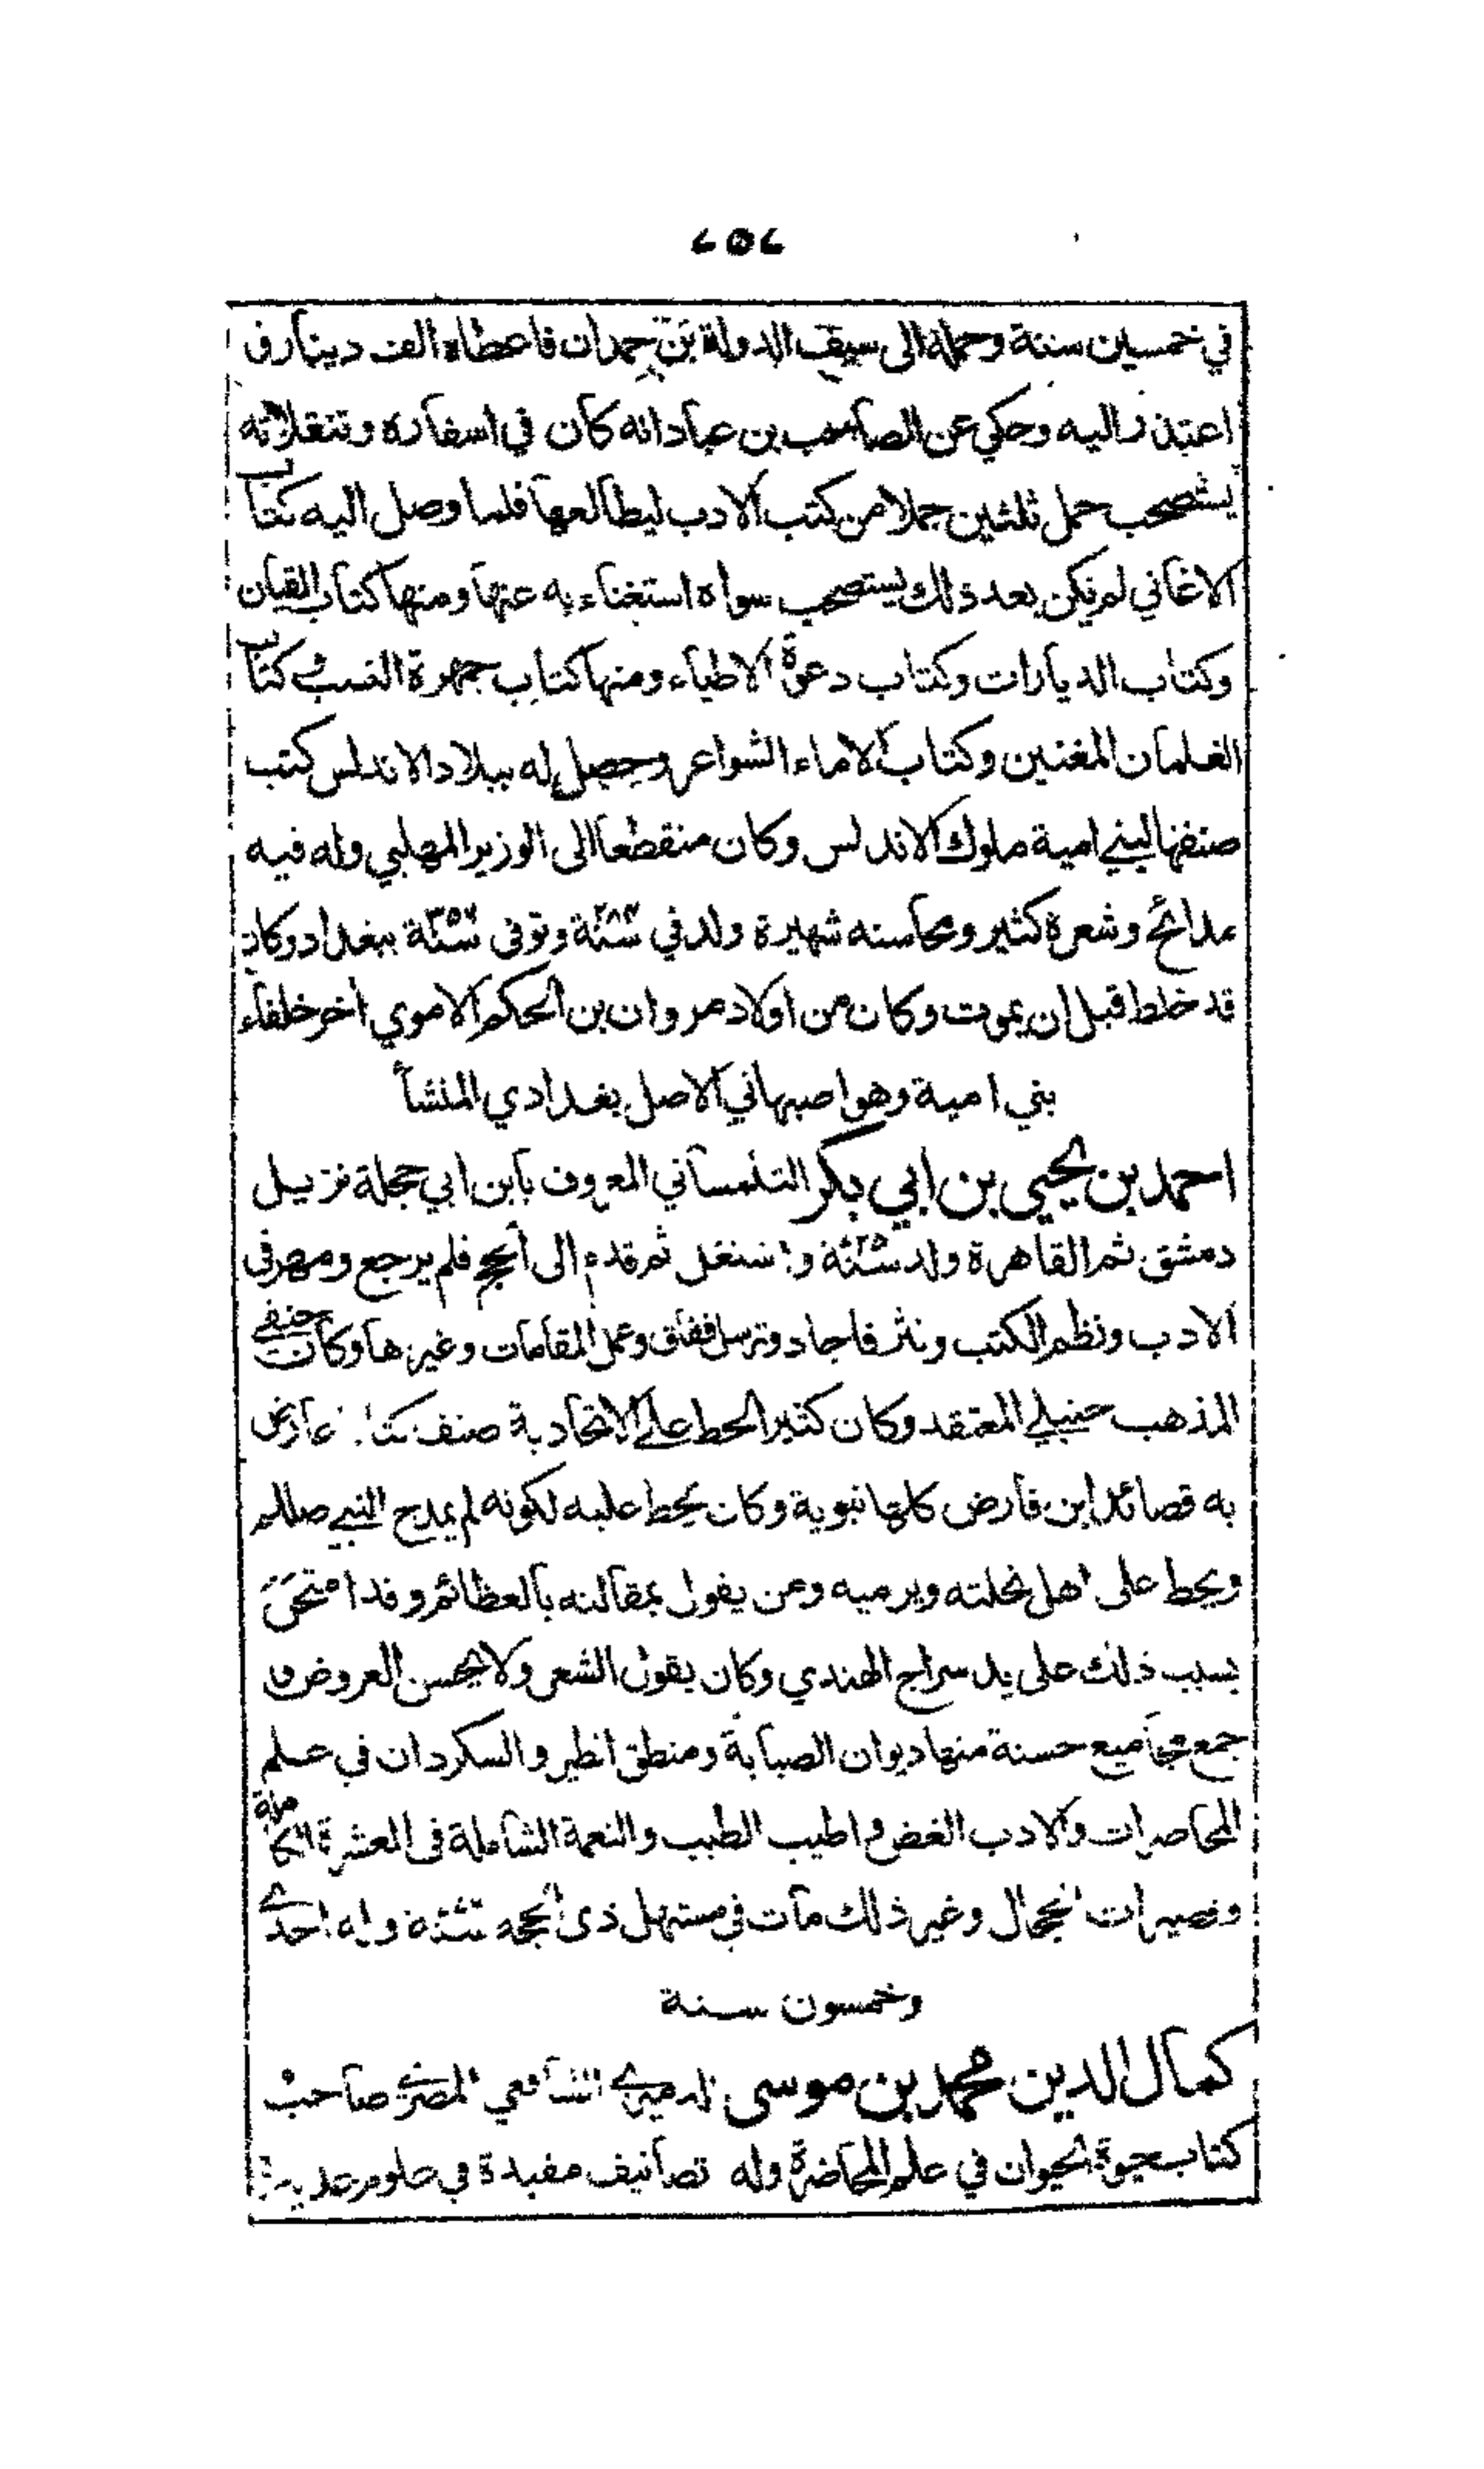 ٧٥٦
في خمسين سنة وحمله الى سيف الدولة بن حمدان فاعطاه الف دينار ف
اعتذر اليه وحكي عن الصاحب بن عباد انه كان في اسفاره وتنقلاته
يستصحب حمل ثلثين جملا من كتب الادب ليطالعها فلما وصل اليه كتاب
الاغاني لم يكن بعد ذلك يستصحب سواه استغناء به عنها ومنها كتاب القيان
وكتاب الديارات وكتاب دعوة الاطباء ومنها كتاب جمهرة النسب كتاب
الغلمان المغنين وكتاب الاماء الشواعر وحصل له ببلاد الاندلس كتب
صنفها لبني امية ملوك الاندلس وكان منقطعا الى الوزير المهلبي وله فيه
مدائح وشعره كثير ومحاسنه شهيرة ولد في سنة ٢٨٣ وتوفى سنة ٣٥٧ ببغداد وكان
قد خلط قبل ان يموت وكان من اولاد مروان بن الحكم الاموي اخر خلفاء
بني امية وهو اصبهاني الاصل بغدادي المنشأ
احمد بن يحيى بن ابي بكر التلمساني المعروف بابن ابي حجلة نزيل
دمشق ثم القاهرة ولد سنة ٧٢٥ واشتغل ثم قدم الى الحج فلم يرجع ومهر في
الادب ونظم الكتب ونثر فاجاد وترسل ففاق وعمل المقامات وغيرها وكان حنفي
المذهب حنبلي المعتقد وكان كثير الحط على الاتحادية صنف كتابا عارض
به قصائد ابن فارض كلها نبوية وكان يحط عليه لكونه لم يمدح النبي صللم
ويحط على اهل نحلته ويرميه ومن يقول بمقالته بالعظائم وقد امتحن
بسبب ذلك على يد سراج الهندي وكان يقول الشعر ولا يحسن العروض و
جمع مجاميع حسنة منها ديوان الصبابة ومنطق الطير والسكردان في علم
المحاضرات والادب الغض واطيب الطيب والنعمة الشاملة فى العشرة الكاملة
وقصيرات الحجال وغير ذلك مات في مستهل ذى الحجه وله احدى
وخمسون سنة
كمال الدين محمد بن موسى الدميري الشافعي المصري صاحب
كتاب حيوة الحيوان في علم المحاضرة وله تصانيف مفيدة في علوم عديدة